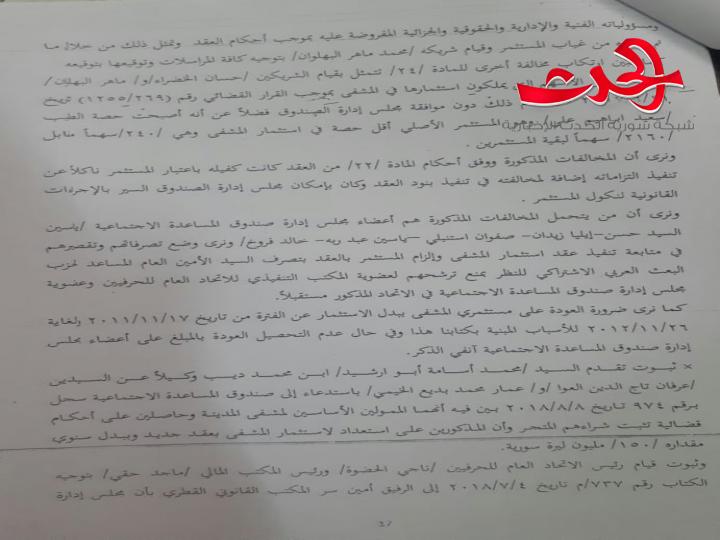 ومسؤولياته الفنية والإدارية والحقوقية والجزائية المفروضة عليه بموجب أحكام العقد وتمثل ذلك من خلال ما
من غياب المستثمر وقيام شريكه /محمد ماهر البهلوان/ بتوجيه كافة المراسلات وتوقيعها بتوقيعه
ارتكاب مخالفة أخرى للمادة /٢٤/ تتمثل بقيام الشريكين /حسان الخضراء/و/ ماهر البهلوان/
يملكون استثمارها في المشفى بموجب القرار القضائي رقم (١٢٥٥/٢٦٩) تاريخ
ذلك دون موافقة مجلس إدارة الصندوق فضلاً عن أنه أصبحت حصة الطبيب
/سعيد ابراهيم علي/ وهو المستثمر الأصلي أقل حصة في استثمار المشفى وهي /٢٤٠/سهماً مقابل
/٢١٦٠/ سهماً لبقية المستثمرين .
ونرى أن المخالفات المذكورة ووفق أحكام المادة /٢٢/ من العقد كانت كفيله باعتبار المستثمر ناكلاً عن
تنفيذ التزاماته إضافة لمخالفته في تنفيذ بنود العقد وكان بإمكان مجلس إدارة الصندوق السير بالإجراءات
القانونية لنكول المستثمر .
ونرى أن من يتحمل المخالفات المذكورة هم أعضاء مجلس إدارة صندوق المساعدة الاجتماعية /ياسين
السيد حسن-إيليا زيدان- صفوان استنبلي -ياسين عبد ربه- خالد فروخ/ ونرى وضع تصرفاتهم وتقصيرهم
في متابعة تنفيذ عقد استثمار المشفى وإلزام المستثمر بالعقد بتصرف السيد الأمين العام المساعد لحزب
البعث العربي الاشتراكي للنظر بمنع ترشحهم لعضوية المكتب التنفيذي للاتحاد العام للحرفيين وعضوية
مجلس إدارة صندوق المساعدة الاجتماعية في الاتحاد المذكور مستقبلاً.
كما نرى ضرورة العودة على مستثمري المشفى ببدل الاستثمار عن الفترة من تاريخ ٢٠١١/١١/١٧ ولغاية
٢٠١٢/١١/٢٦ للأسباب المبنية بكتابنا هذا وفي حال عدم التحصيل العودة بالمبلغ على أعضاء مجلس
إدارة صندوق المساعدة الاجتماعية آنفي الذكر.
× ثبوت تقدم السيد /محمد أسامة أبو ارشيد/ ابن محمد ديب وكيلاً عن السيدين
/عرفان تاج الدين العوا /و/ عمار محمد بديع الخيمي/ باستدعاء إلى صندوق المساعدة الاجتماعية سجل
برقم ٩٧٤ تاريخ ٢٠١٨/٨/٨ بين فيه أنهما الممولين الأساسين لمشفى المدينة وحاصلين على أحكام
قضائية تثبت شراءهم المتجر وأن المذكورين على استعداد لاستثمار المشفى بعقد جديد وببدل سنوي
مقداره /١٥٠/ مليون ليرة سورية.
وثبوت قيام رئيس الاتحاد العام للحرفيين /ناجي الحضوة/ ورئيس المكتب المالي /ماجد حقي/ بتوجيه
الكتاب رقم ٧٣٧/م تاريخ ٢٠١٨/٧/٤ إلى الرفيق أمين سر المكتب القانوني القطري بأن مجلس إدارة
الحدث
شبكة سورية الحدث الإخبارية